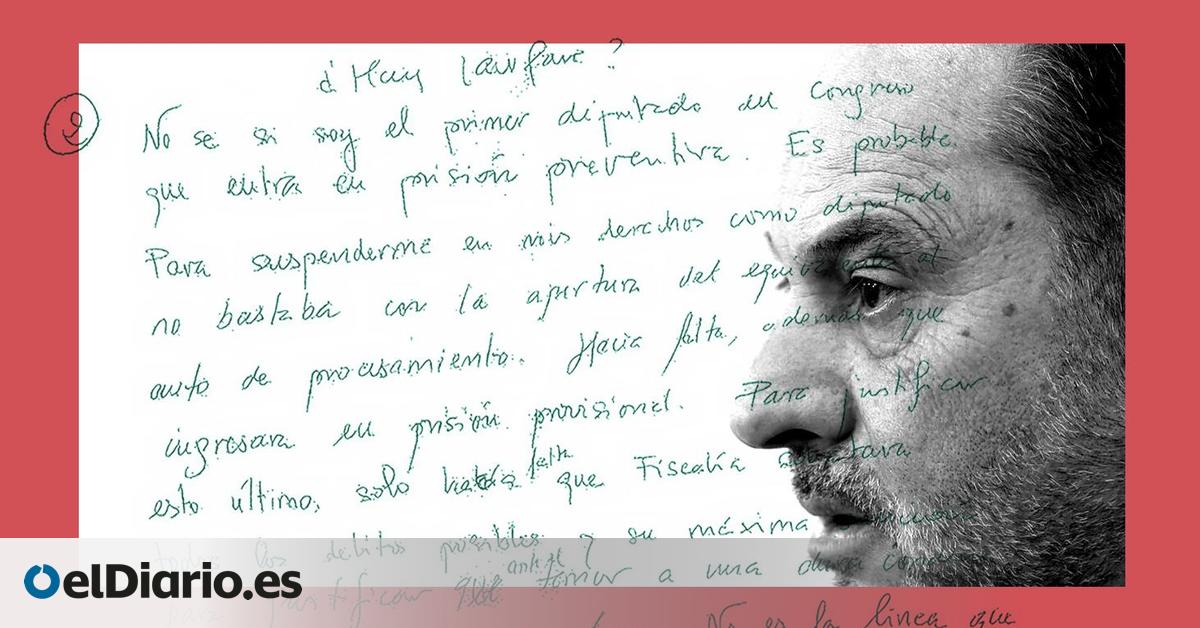 ¿Hay lawfare?
2
No se si soy el primer diputado del Congreso
que entra en prisión preventiva. Es probable.
Para suspenderme en mis derechos como diputado
no bastaba con la apertura del equivalente at
auto de procesamiento. Hacia falta, además que
ingresara en prisión provisional. Para justificar
esto último, solo falta que Fiscalía
los delitos posibles y su máxima
anhel
justificar que temor a una dura
No es la linea que
elDiario.es